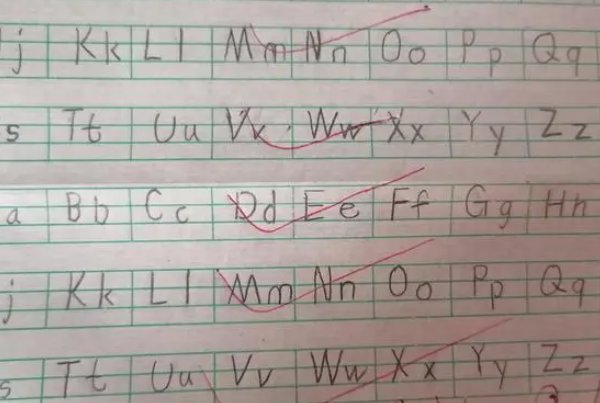 j Kk Ll Mm Nn Oo Pp Qq
s Tt Uu Vv Ww Xx Yy Zz
a Bb Cc Dd Ee Ff Gg Hh
j Kk Ll Mm Nn Oo Pp Qq
s Tt Uu Vv Ww Xx Yy Zz